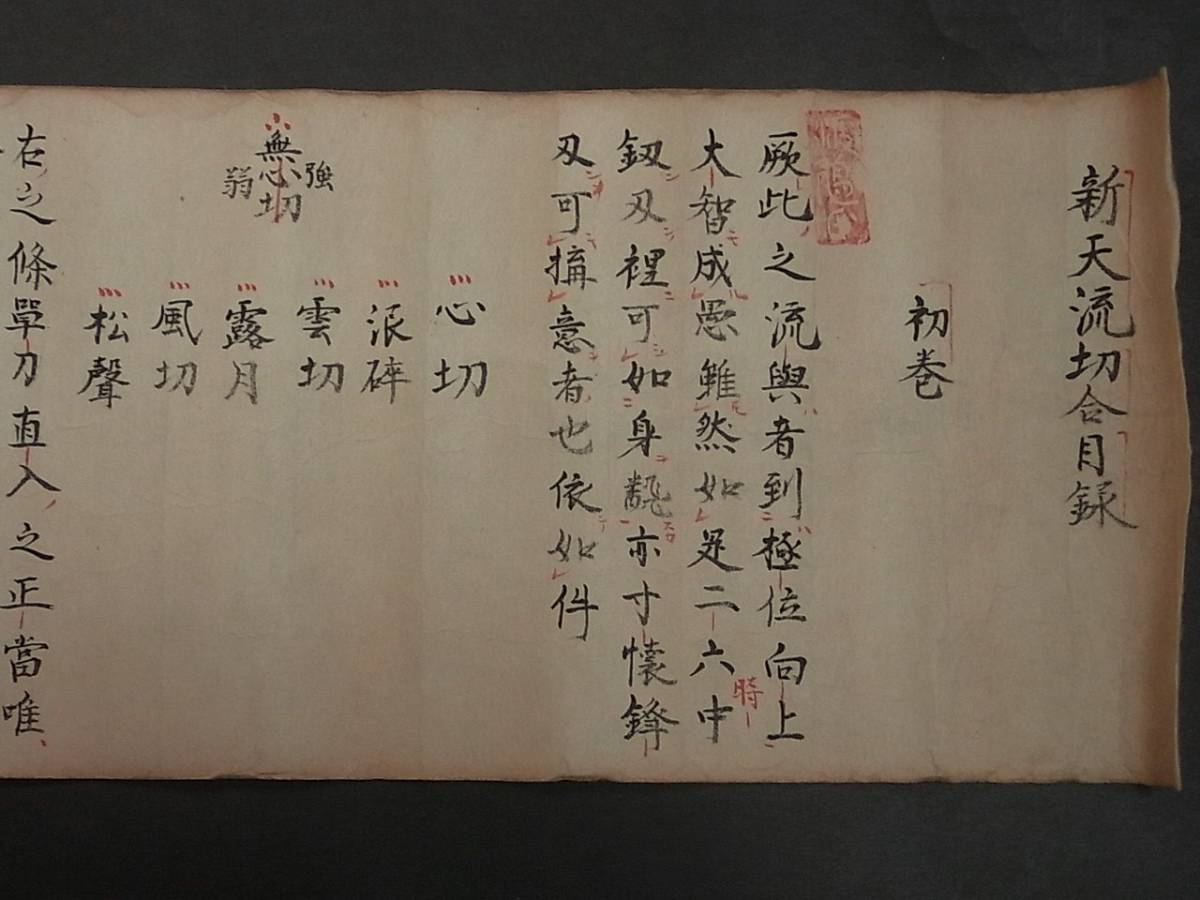 新天流切合目録
初巻
厥此之流與者到極位向上
大智成愚雖然如是二六中
時
釼刄裡可如身亦寸懐鋒
刄可意者也依如件
心切
浪碎
雲切
強
無心切
弱
露月
風切
松聲
右之條單刀直入之正當唯